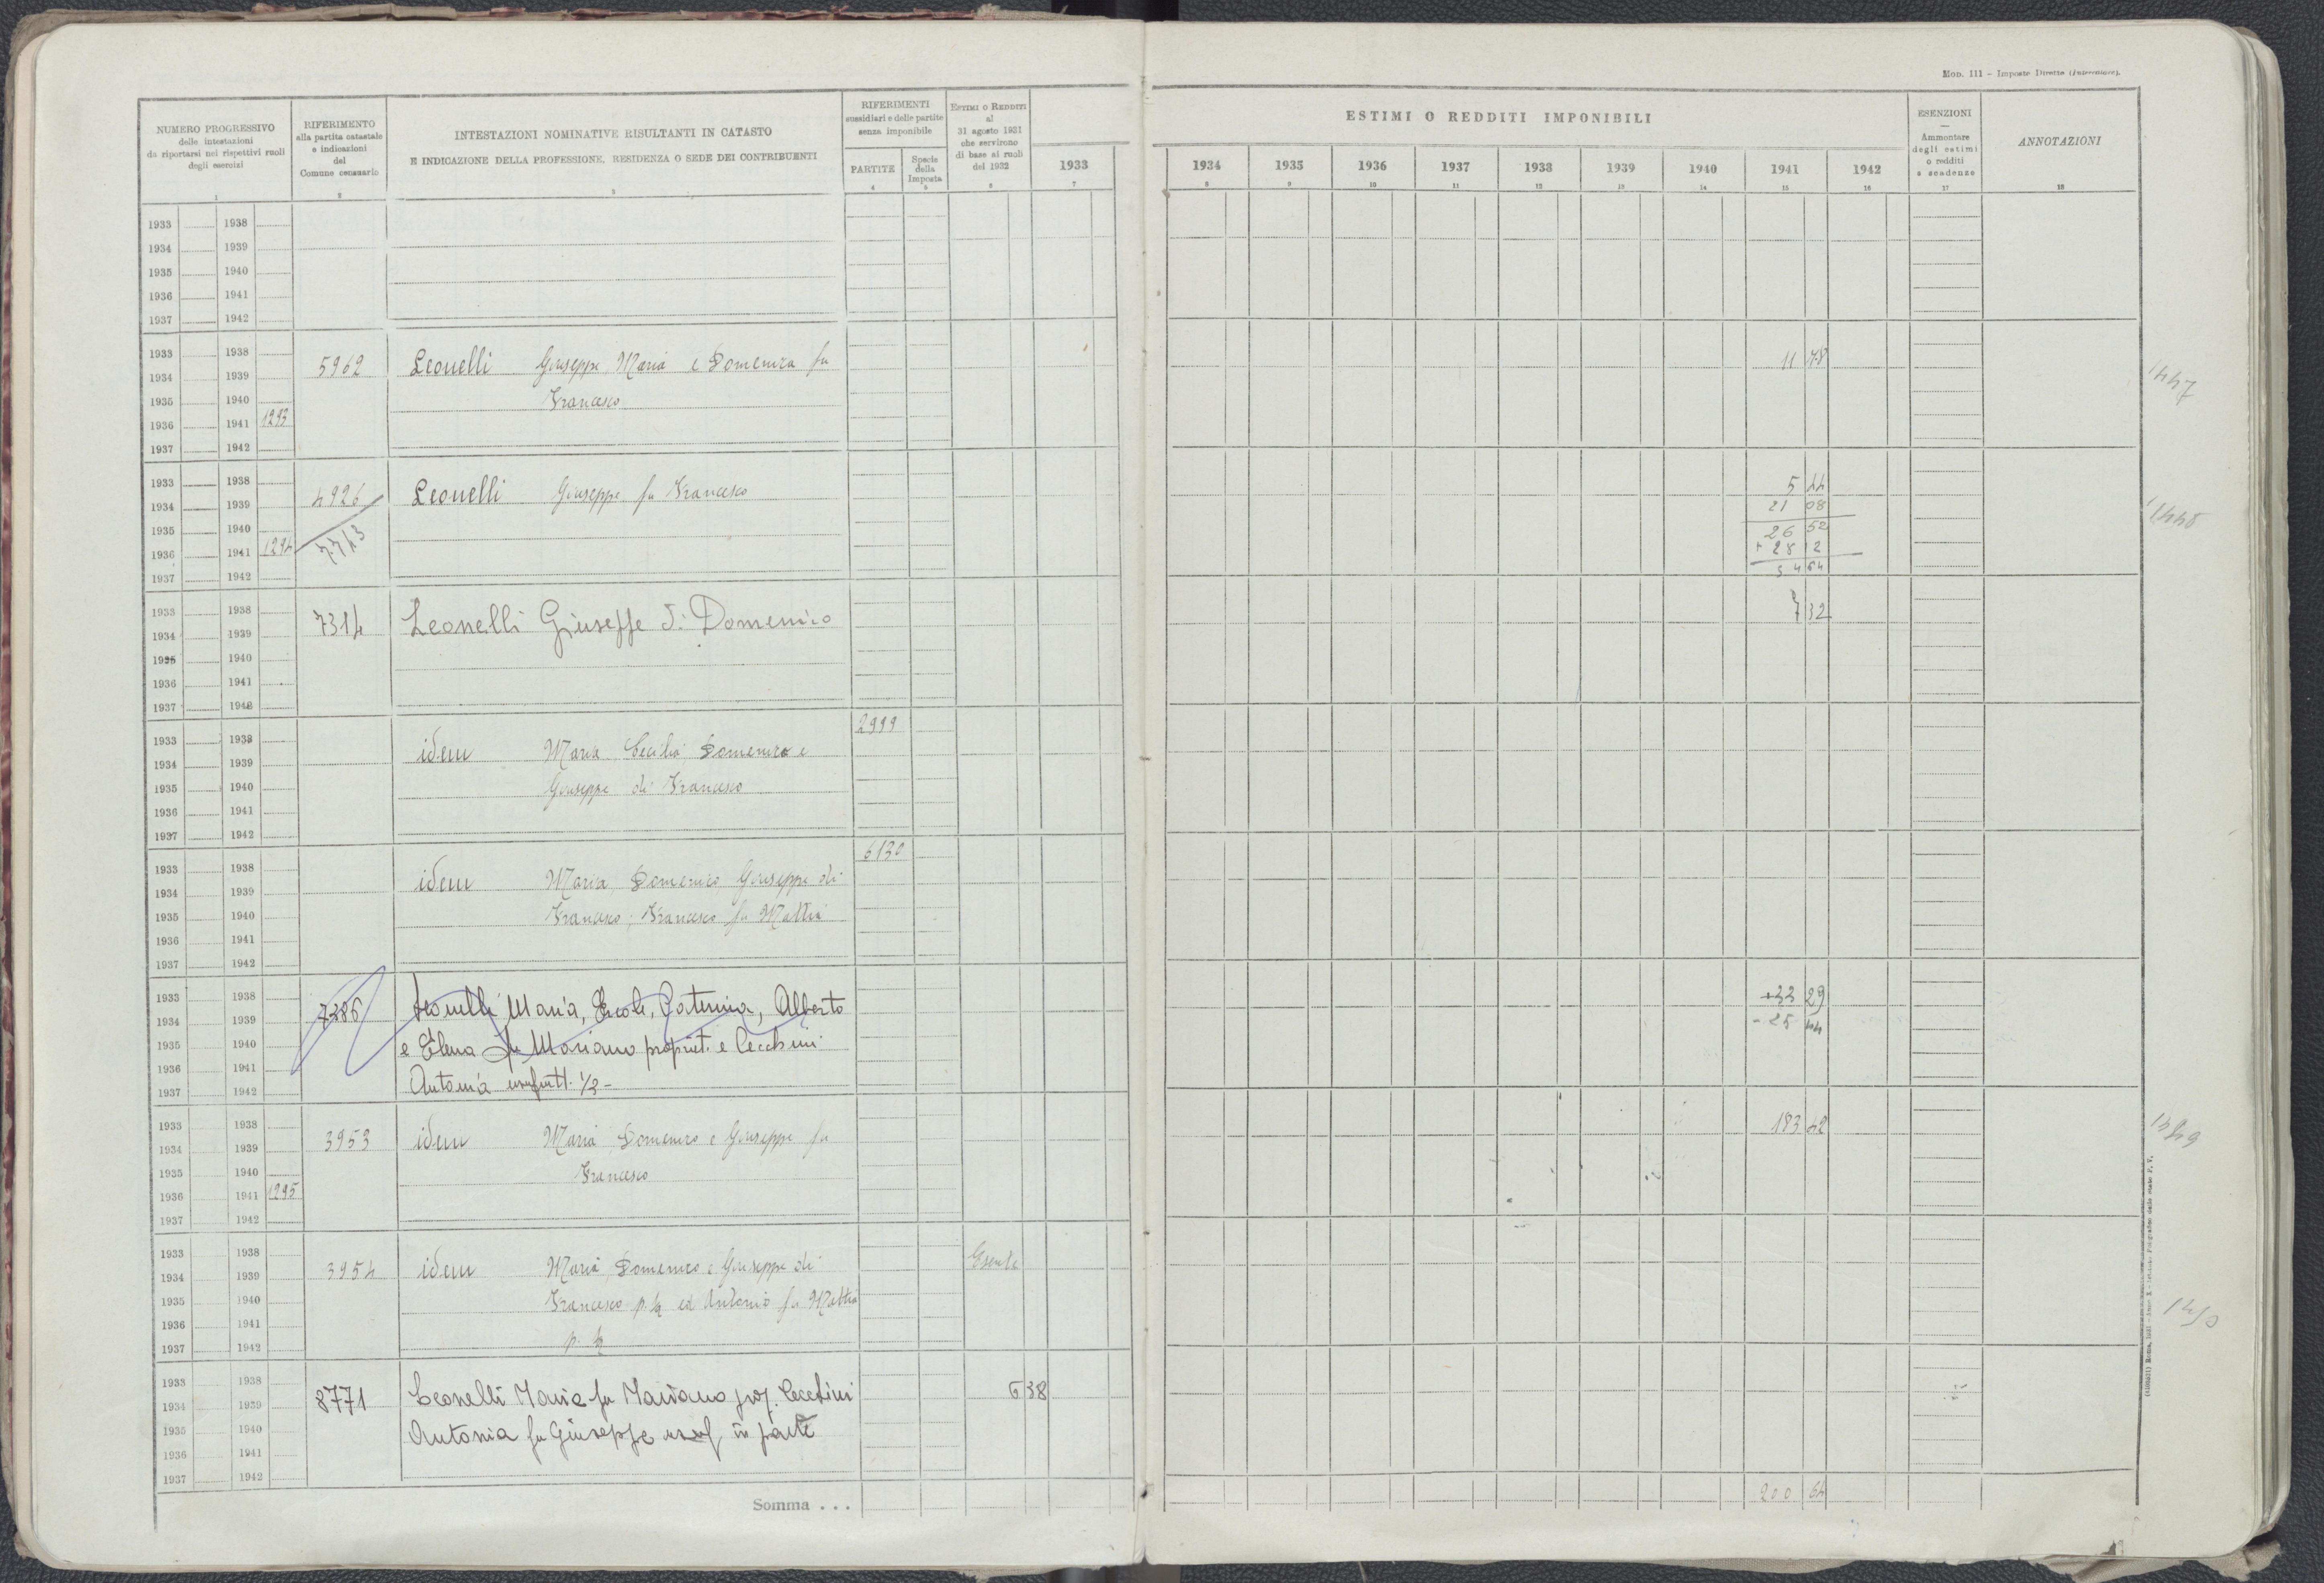 MOD. 111 - Imposte Dirette (Intercalare).
NUMERO PROGRESSIVO
delle intestazioni
da riportarsi nei rispettivi ruoli
degli esercizi
RIFERIMENTO
alla partita catastale
e indicazioni
del
Comune censuario
INTESTAZIONI NOMINATIVE RISULTANTI IN CATASTO
E INDICAZIONE DELLA PROFESSIONE, RESIDENZA O SEDE DEI CONTRIBUENTI
RIFERIMENTI
sussidiari e delle partite
senza imponibile
PARTITE
Specie
della
Imposta
ESTIMI O REDDITI
al
31 agosto 1931
che servirono
di base ai ruoli
del 1932
ESTIMI O REDDITI IMPONIBILI
1933 1934 1935 1936 1937 1938 1939 1940 1941 1942
ESENZIONI
—
Ammontare
degli estimi
o redditi
e scadenze
ANNOTAZIONI
1 2 3 4 5 6 7 8 9 10 11 12 13 14 15 16 17 18
1933 1938
1934 1939
1935 1940
1936 1941
1937 1942
1933 1938
1934 1939 5962 Leonelli Giuseppe Maria e Domenica fu 11 78 1447
1935 1940 Francesco
1936 1941 1293
1937 1942
1933 1938 5 44
1934 1939 4926 Leonelli Giuseppe fu Francesco 21 08 1448
1935 1940 26 52
1936 1941 1294 7713 + 28 12
1937 1942 54 64
1933 1938 7 32
1934 1939 7314 Leonelli Giuseppe di Domenico
1935 1940
1936 1941
1937 1942
2999
1933 1938
1934 1939 idem Maria Cecilia Domenico e
1935 1940 Giuseppe di Francesco
1936 1941
1937 1942
6130
1933 1938
1934 1939 idem Maria, Domenico Giuseppe di
1935 1940 Francesco; Francesco fu Mattia
1936 1941
1937 1942
1933 1938 7386 Leonelli Maria, Ercole, Caterina, Alberto +33 29
1934 1939 - 25 44
1935 1940 e Elena fu Mariano propriet. e Cecchini
1936 1941
1937 1942 Antonia usufrutt. 1/3 -
1933 1938 183 42 1449
1934 1939 3953 idem Maria Domenico e Giuseppe fu
1935 1940 Francesco
1936 1941 1295
1937 1942
1933 1938 Esente
1934 1939 3954 idem Maria, Domenico e Giuseppe di
1935 1940 Francesco p. ½ ed Antonio fu Mattia
1936 1941 1450
1937 1942 p. ½
1933 1938 6 38
1934 1939 8771 Leonelli Maria fu Mariano prop. Cecchini
1935 1940 Antonia fu Giuseppe usuf. in parte
1936 1941
1937 1942
Somma . . . 200 64